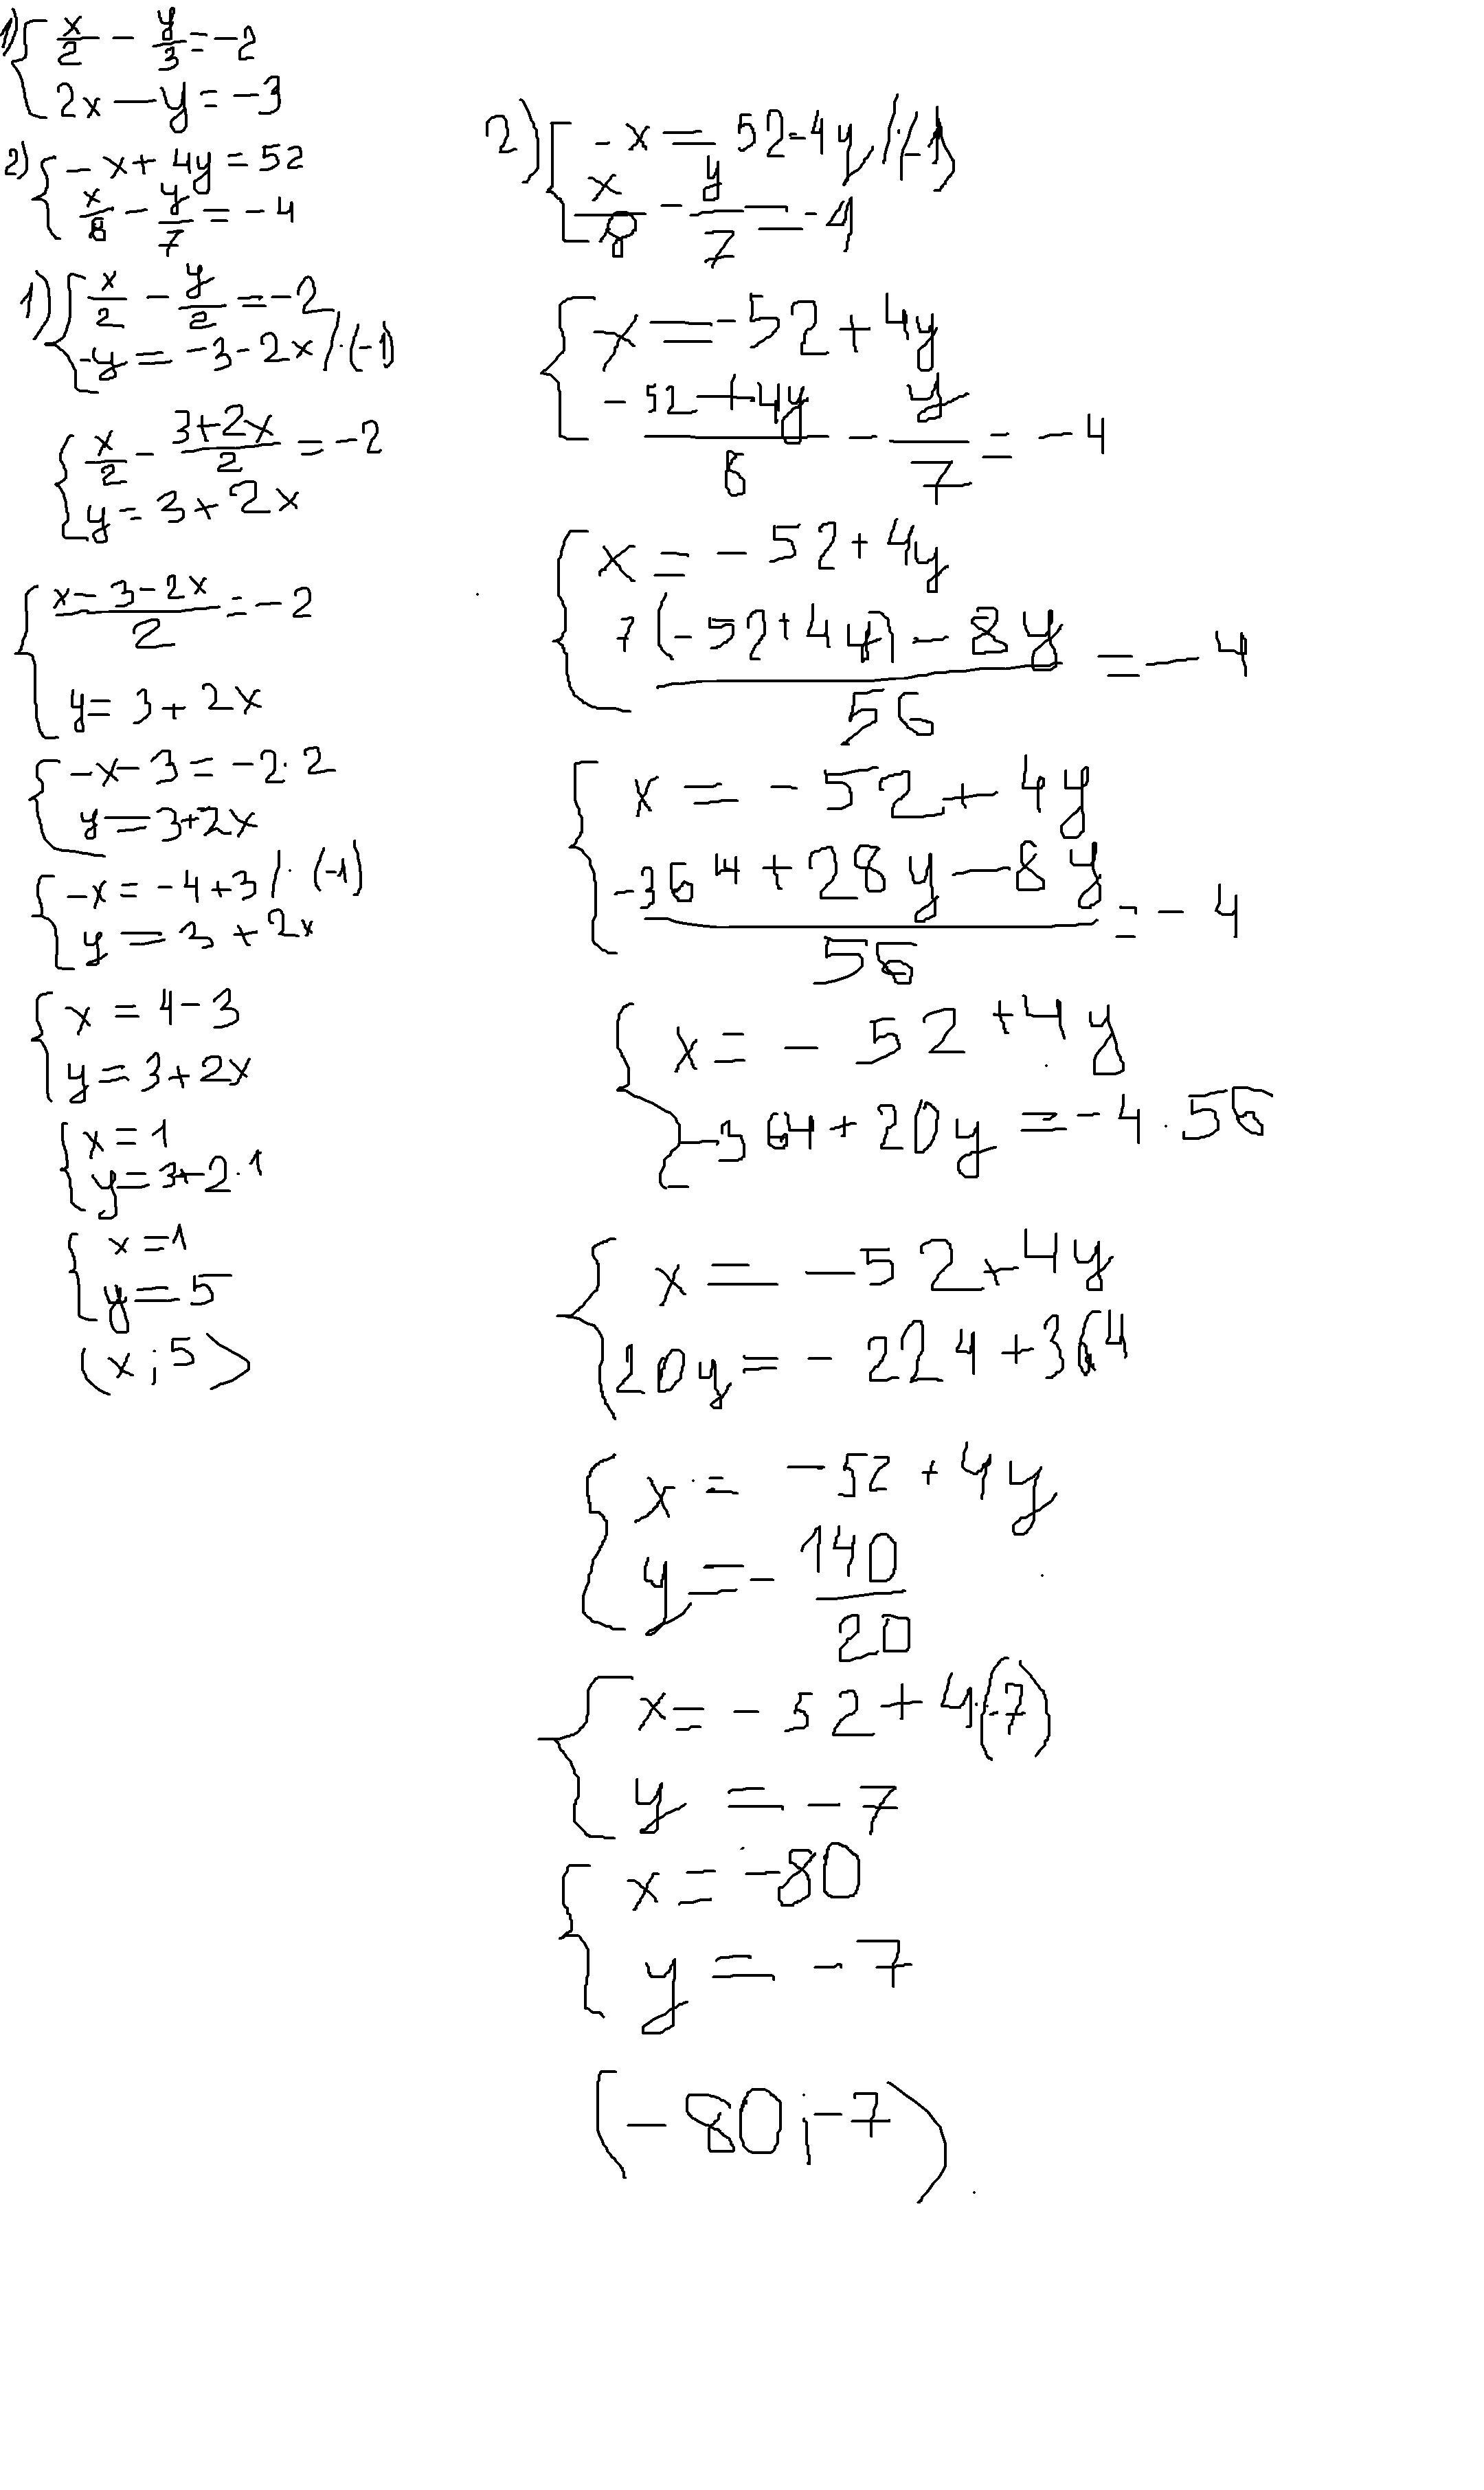 1) { x/2 - y/3 = -2
2x - y = -3
2) { -x + 4y = 52
x/8 - y/7 = -4
1) { x/2 - y/2 = -2
-y = -3 - 2x /·(-1)
{ x/2 - (3+2x)/2 = -2
y = 3 + 2x
{ (x - 3 - 2x)/2 = -2
y = 3 + 2x
{ -x - 3 = -2·2
y = 3 + 2x
{ -x = -4 + 3 /·(-1)
y = 3 + 2x
{ x = 4 - 3
y = 3 + 2x
{ x = 1
y = 3 + 2·1
{ x = 1
y = 5
(x ; 5)
2) { -x = 52 - 4y /·(-1)
x/8 - y/7 = -4
{ x = -52 + 4y
(-52 + 4y)/8 - y/7 = -4
{ x = -52 + 4y
(7(-52 + 4y) - 8y)/56 = -4
{ x = -52 + 4y
(-364 + 28y - 8y)/56 = -4
{ x = -52 + 4y
-364 + 20y = -4·56
{ x = -52 + 4y
20y = -224 + 364
{ x = -52 + 4y
y = - 140/20
{ x = -52 + 4·(-7)
y = -7
{ x = -80
y = -7
(-80 ; -7)